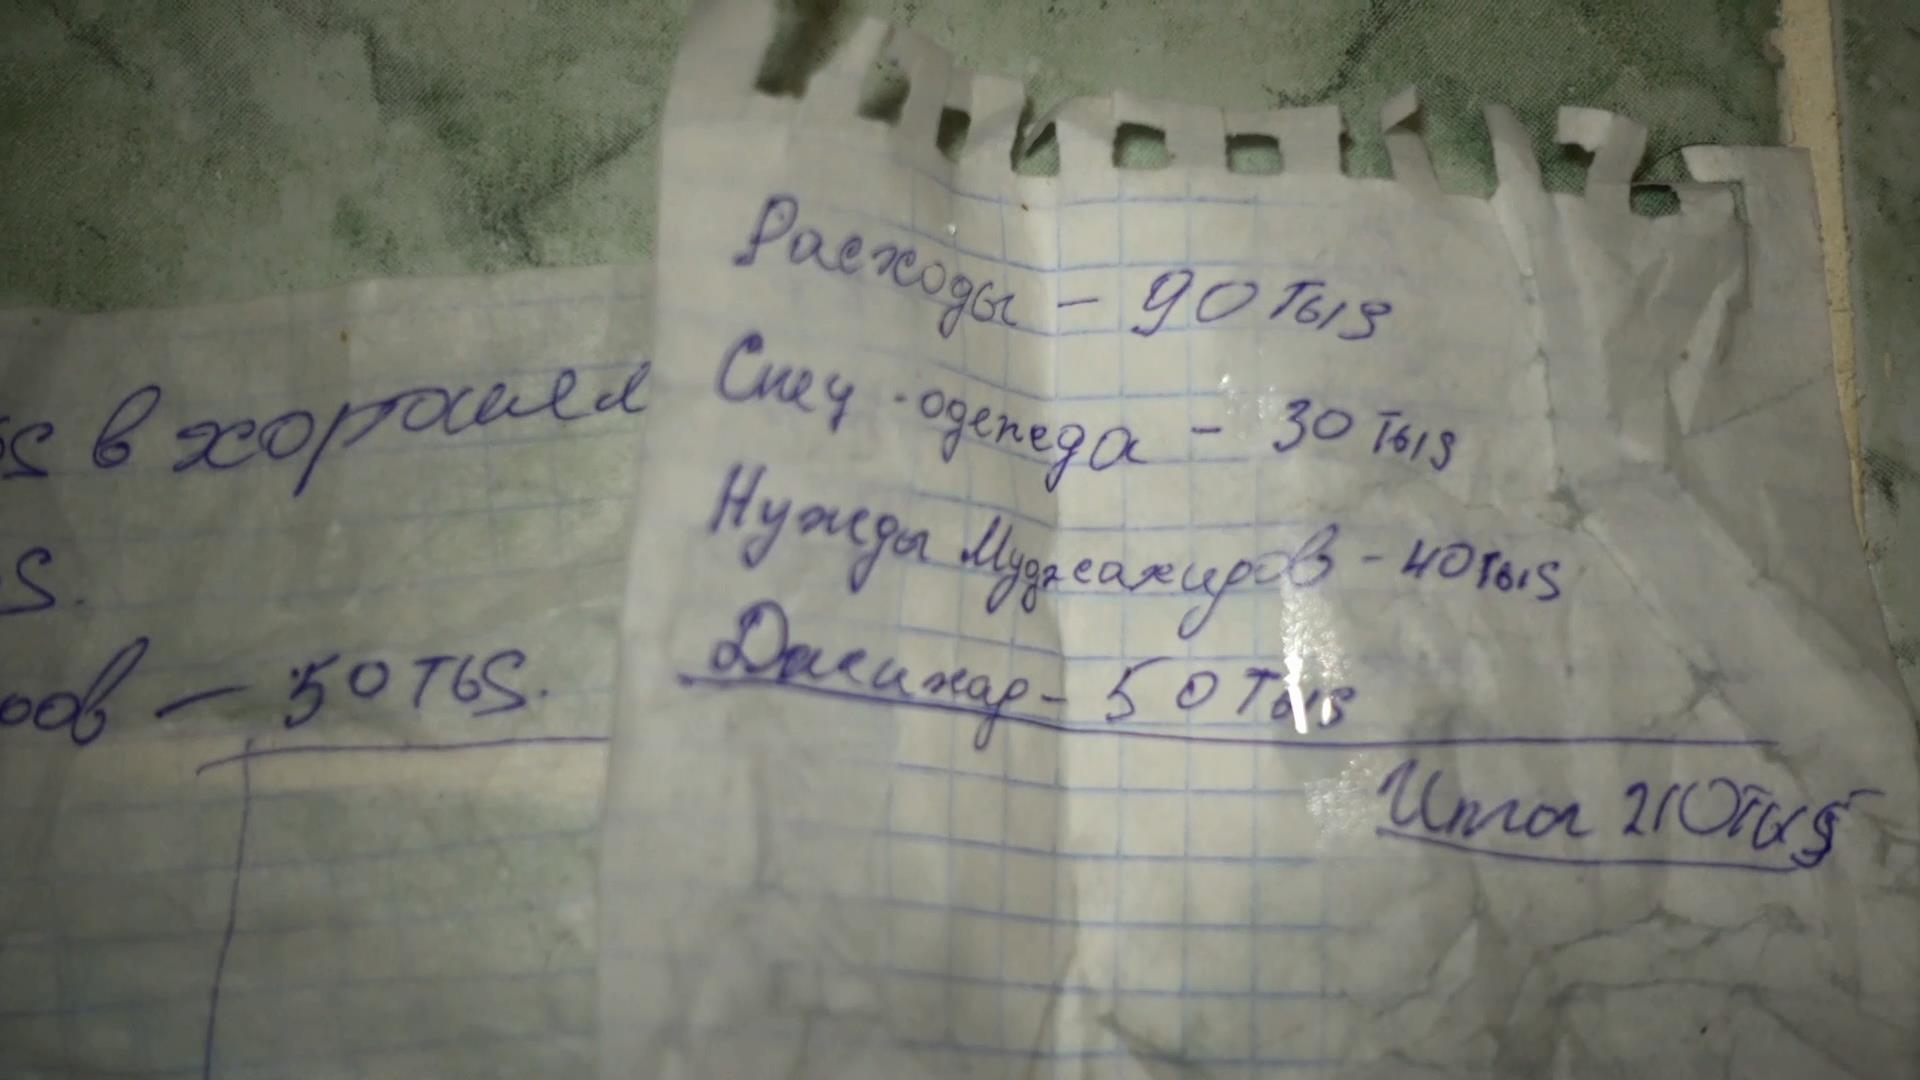 в хорошем
S.
ров – 50 тыS.
Расходы – 90 тыS
Спец-одежда – 30 тыS
Нужды Муджахиров – 40 тыS
– 50 тыS
Итог 210 тыS